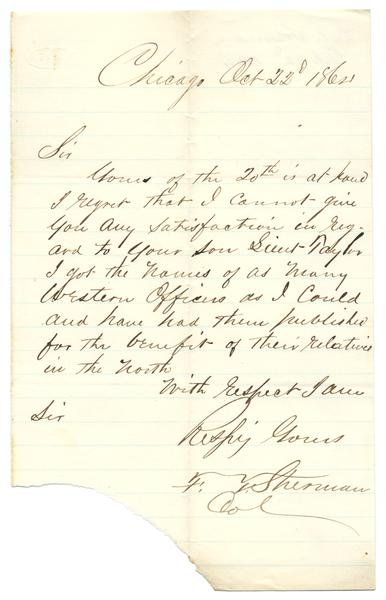 Chicago Oct 22d 1864
Sir
Yours of the 20th is at hand
I regret that I cannot give
You Any Satisfaction in reg-
ard to Your Son Lieut Taylor
I got the Names of as Many
Western Officers as I Could
And have had them published
for the benefit of their relatives
in the North
With respect I am
Sir
Respfy Yours
F. T. Sherman
Col